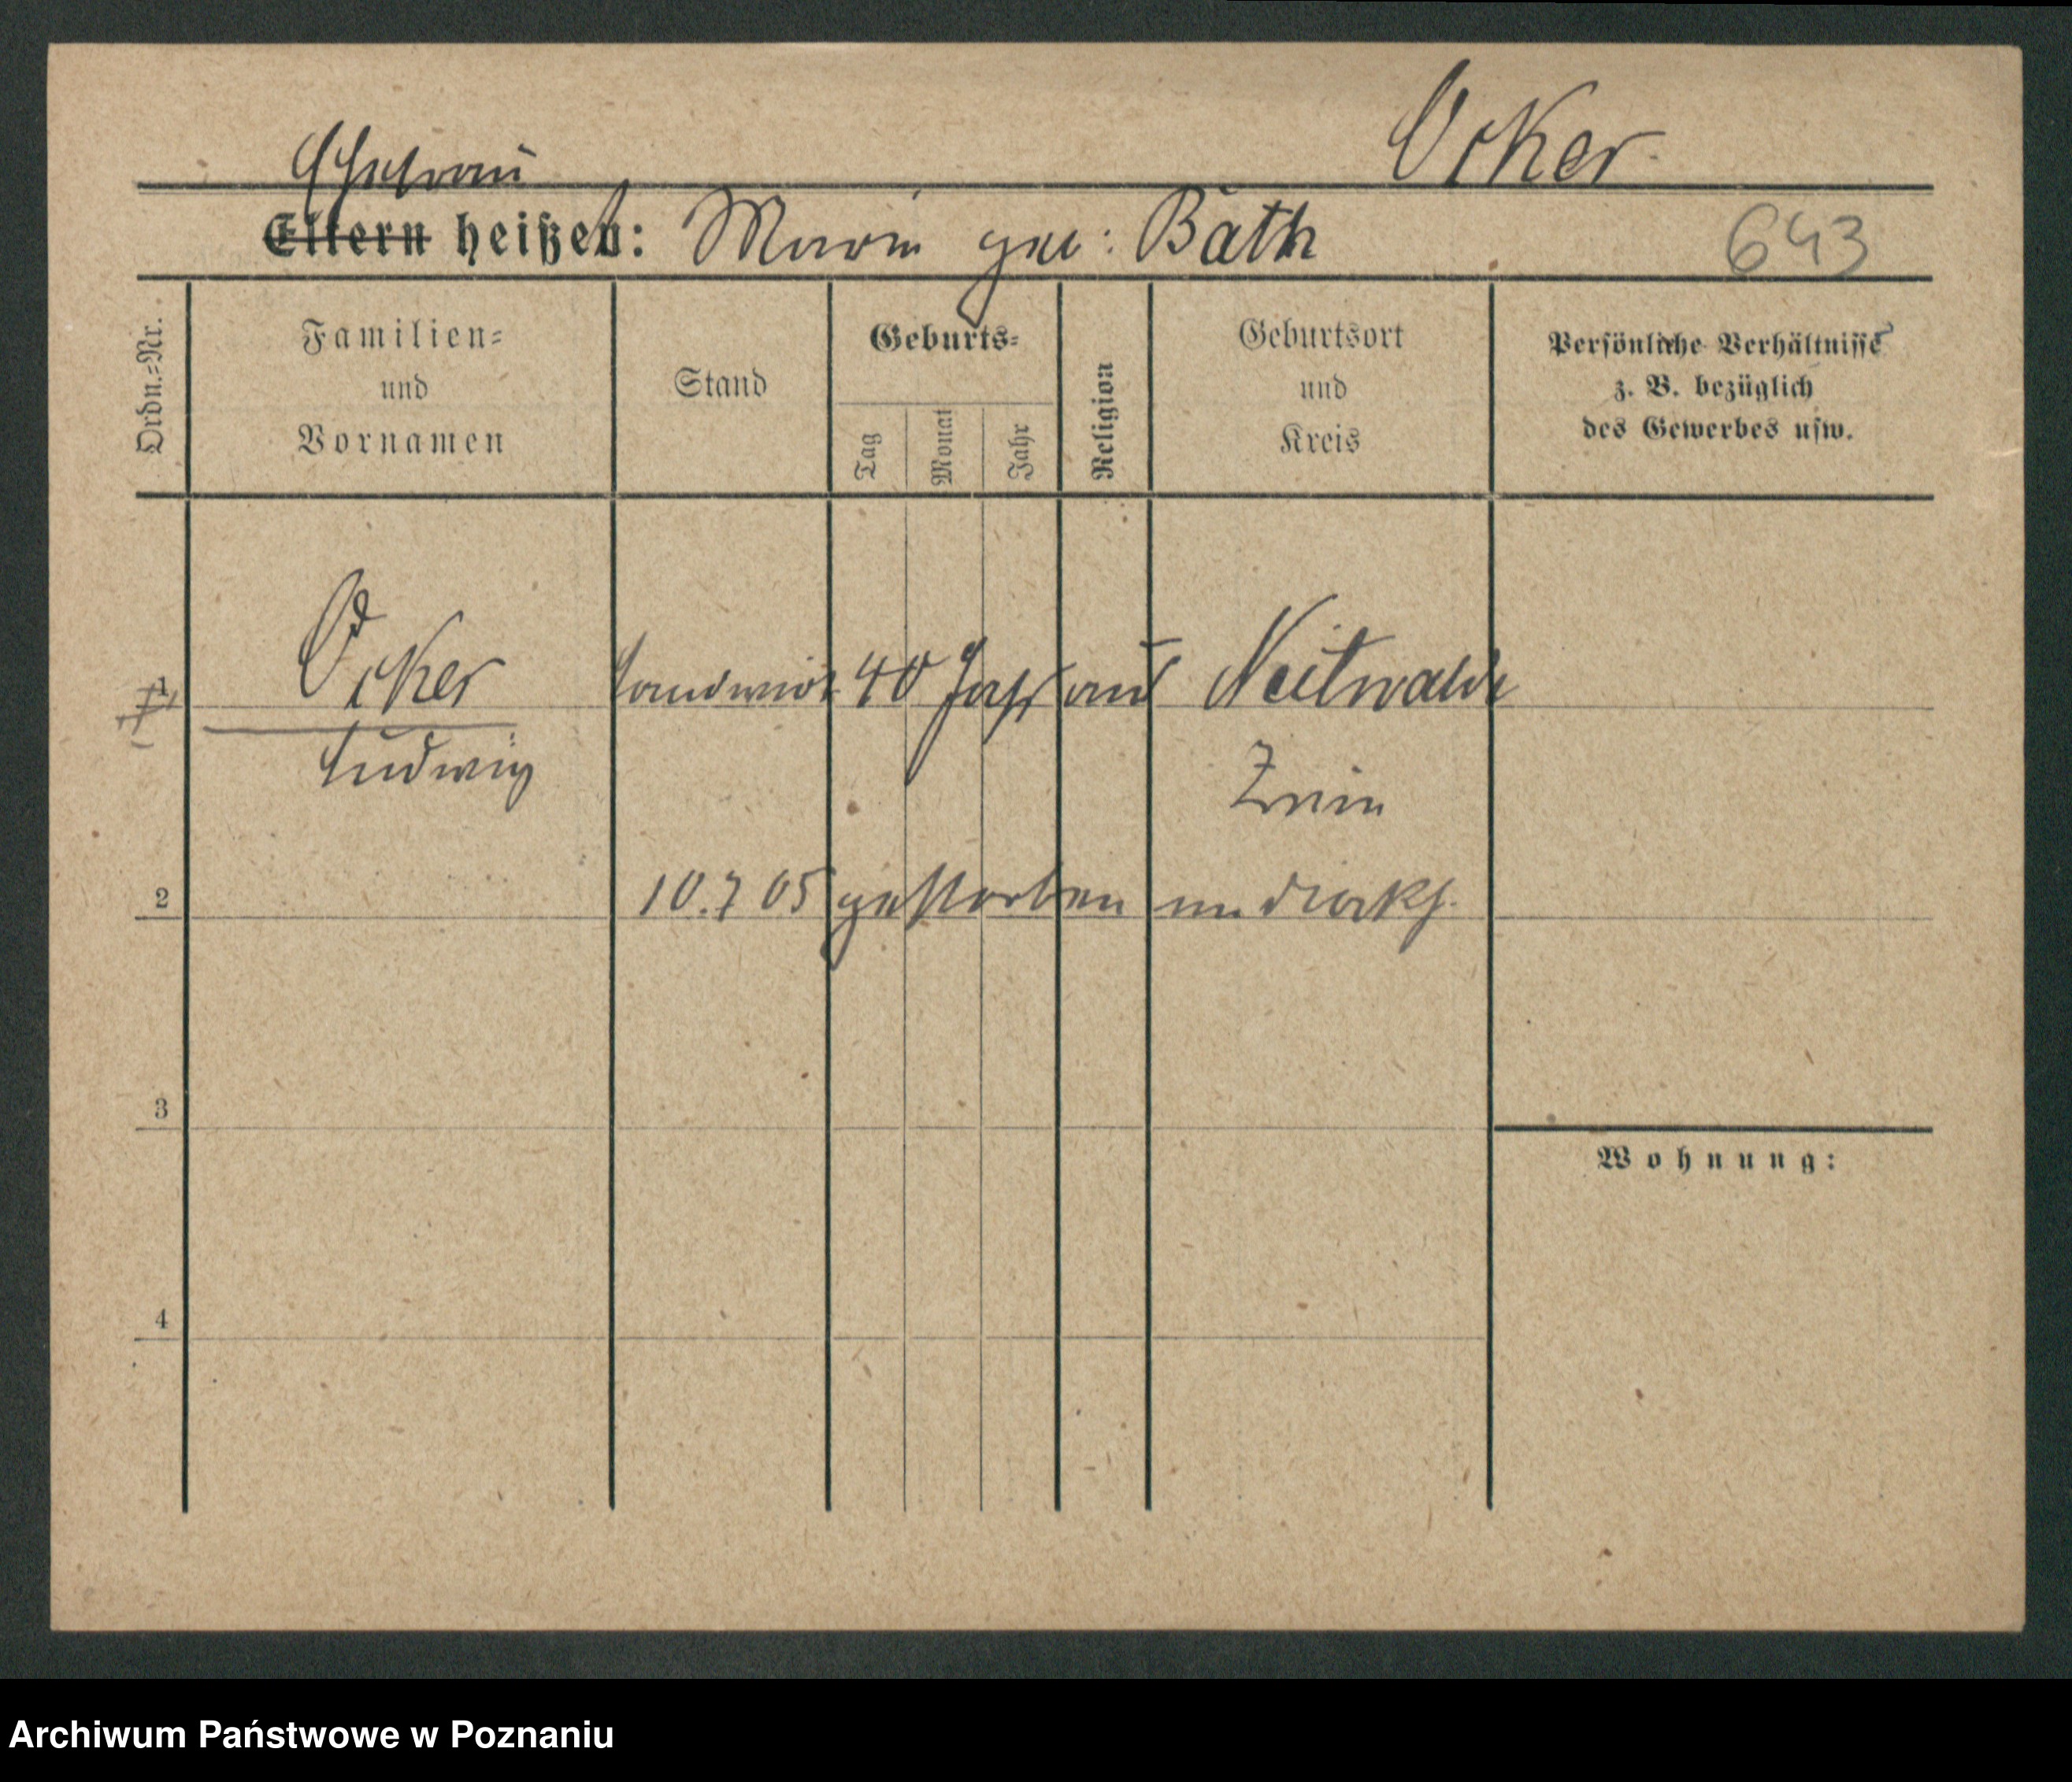 Ehefrau Ocker
Eltern heißen: Marie geb: Bäth 643
Ordn.-Nr.
Familien-
und
Vornamen
Stand
Geburts-
Tag
Monat
Jahr
Religion
Geburtsort
und
Kreis
Persönliche Verhältnisse
z. B. bezüglich
des Gewerbes usw.
1 Ocker Landwirt 40 Jahr aus Neitwalde
Ludwig Znin
2 10.7 05 gestorben im
3
Wohnung:
4
Archiwum Państwowe w Poznaniu